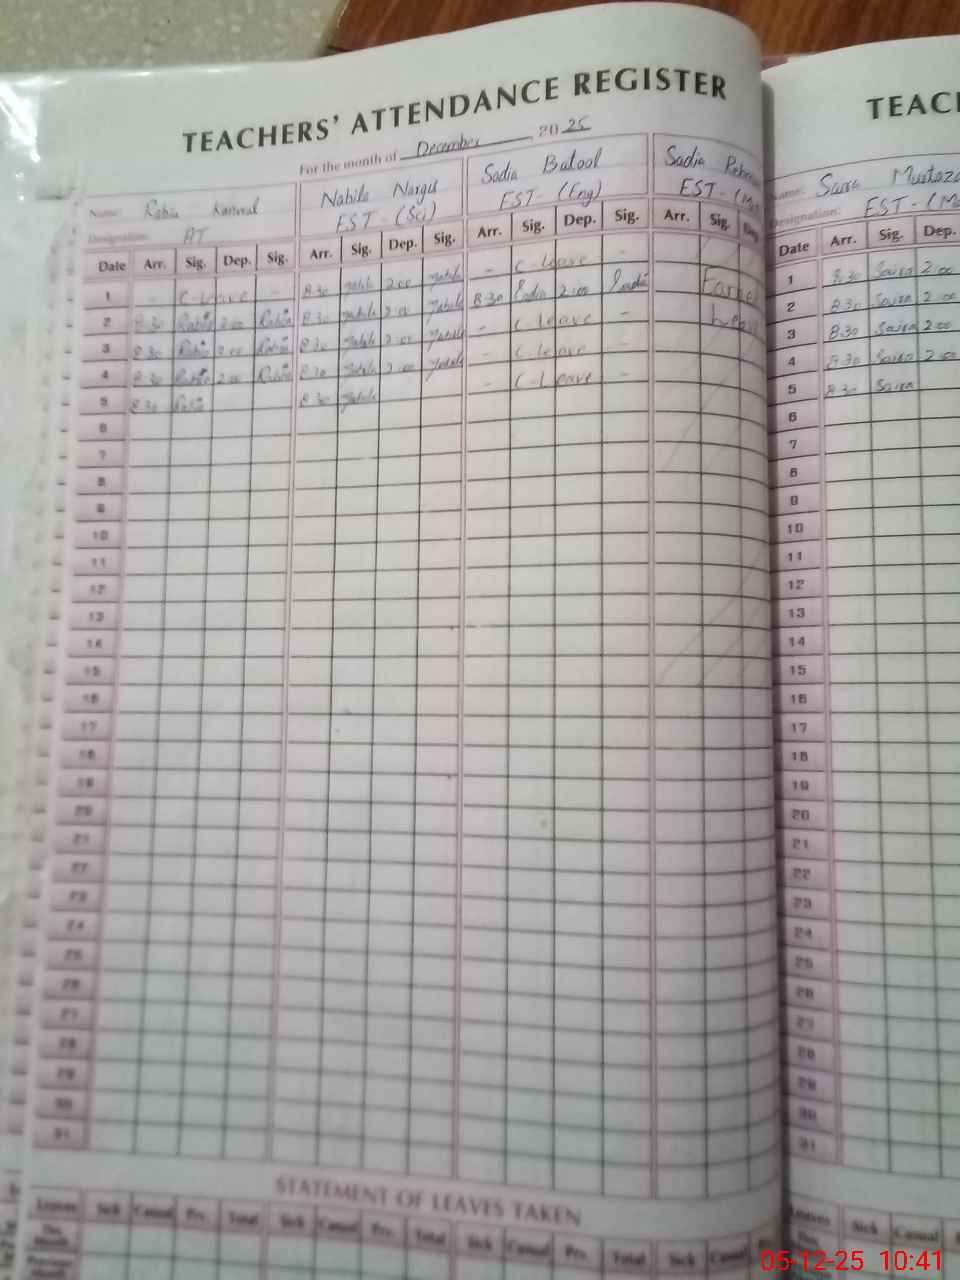 TEACHERS' ATTENDANCE REGISTER
For the month of December 2025
Name: Rabia Kanwal
Nabila Nargis
Sadia Batool
Sadia
Designation: AT
EST-(Sci)
EST-(Eng)
EST-
Date Arr. Sig. Dep. Sig. Arr. Sig. Dep. Sig. Arr. Sig. Dep. Sig. Arr. Sig. Dep.
1 - C-leave - 8:30 Nabila 2:00 Nabila - C-leave -
2 8:30 Rabia 2:00 Rabia 8:30 Nabila 2:00 Nabila 8:30 Sadia 2:00 Sadia
3 8:30 Rabia 2:00 Rabia 8:30 Nabila 2:00 Nabila - C-leave -
4 8:30 Rabia 2:00 Rabia 8:30 Nabila 2:00 Nabila - C-leave -
5 8:30 Rabia 8:30 Nabila - C-leave
6
7
8
9
10
11
12
13
14
15
16
17
18
19
20
21
22
23
24
25
26
27
28
29
30
31
STATEMENT OF LEAVES TAKEN
Leaves Sick Casual Prv. Total Sick Casual Prv. Total Sick Casual Prv. Total Sick Casual
TEAC
Name: Saira
Designation: EST-
Date Arr. Sig. Dep.
1 8:30 Saira 2:00
2 8:30 Saira 2:00
3 8:30 Saira 2:00
4 8:30 Saira 2:00
5 8:30 Saira
6
7
8
9
10
11
12
13
14
15
16
17
18
19
20
21
22
23
24
25
26
27
28
29
30
31
Leaves Sick Casual
05-12-25 10:41